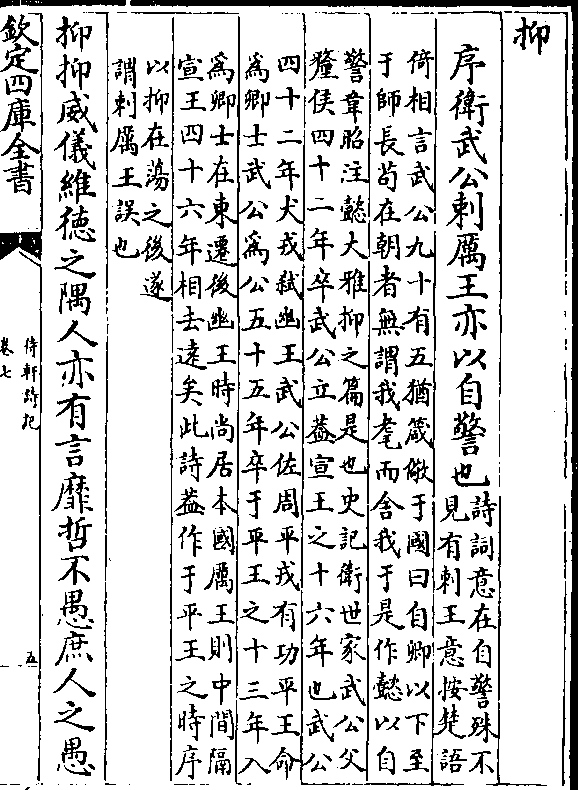 抑
序衛武公刺厲王亦以自警也
詩詞意在自警殊不
見有刺王意按楚語
倚相言武公九十有五猶箴儆于國曰自卿以下至
于師長苟在朝者無謂我耄而舍我于是作懿以自
警韋昭注懿大雅抑之篇是也史記衛世家武公父
釐侯四十二年卒武公立葢宣王之十六年也武公
四十二年犬戎弑幽王武公佐周平戎有功平王命
爲卿士武公爲公五十五年卒于平王之十三年入
爲卿士在東遷後幽王時尚居本國厲王則中間隔
宣王四十六年相去遠矣此詩葢作于平王之時序
以抑在蕩之後遂
謂刺厲王誤也
抑抑威儀維德之隅人亦有言靡哲不愚庶人之愚
欽定四庫全書
待軒詩記
卷七
五